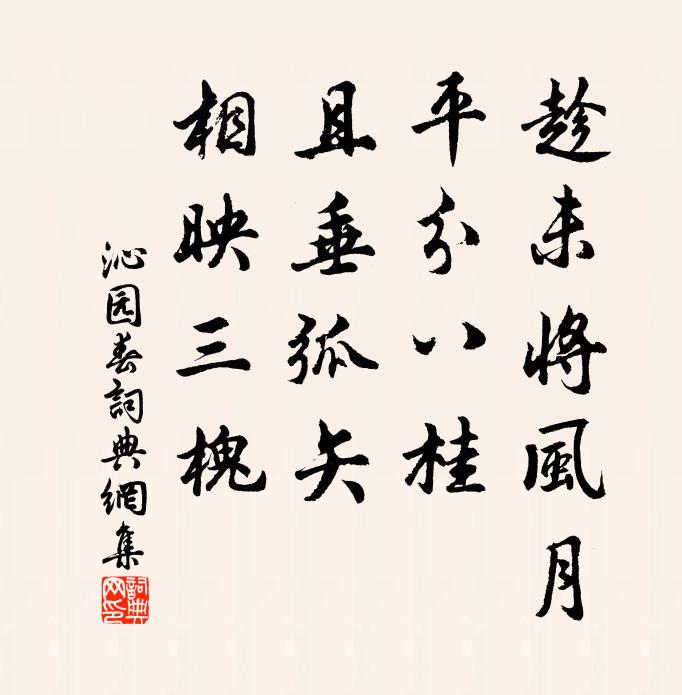 趁未將風月
平分八桂
且垂弧矢
相映三槐
沁园春詞典網集
詞典网印